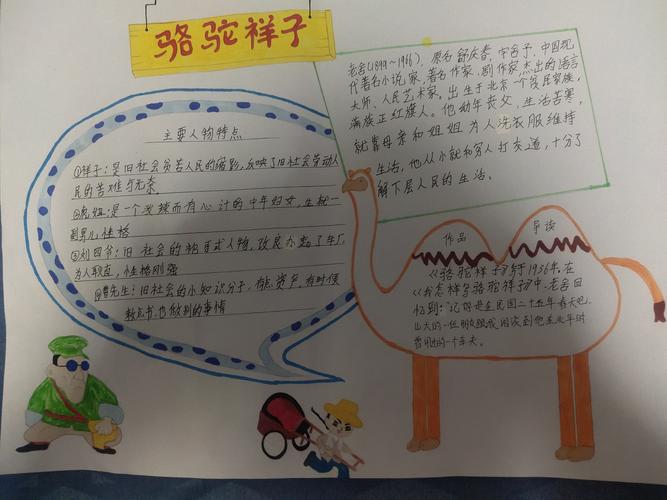 骆驼祥子
老舍(1899~1966),原名舒庆春,字舍予,中国现
代著名小说家,著名作家,剧作家杰出的语言
大师、人民艺术家,出生于北京一个贫民家族,
满族正红旗人。他幼年丧父,生活苦寒,
就靠母亲和姐姐为人洗衣服维持
生活,他从小就和穷人打交道,十分了
解下层人民的生活。
主要人物特点
①祥子:是旧社会负苦人民的缩影,反映了旧社会劳动人
民的苦难与无奈
②虎妞:是一个泼辣而有心计的中年妇女,生就一
副男儿性格
③刘四爷:旧社会的袍哥式人物,改良办起了车厂,
为人耿直,性格刚强
④曹先生:旧社会的小知识分子,有点资产,有时候
教点书,也做别的事情
作品 导读
《骆驼祥子》写于1936年,在
《我怎样写骆驼祥子》中,老舍回
忆到:"记得是在民国二十五年春天吧,
山大的一位朋友跟我闲谈到他在北平时
曾用过的一个车夫。